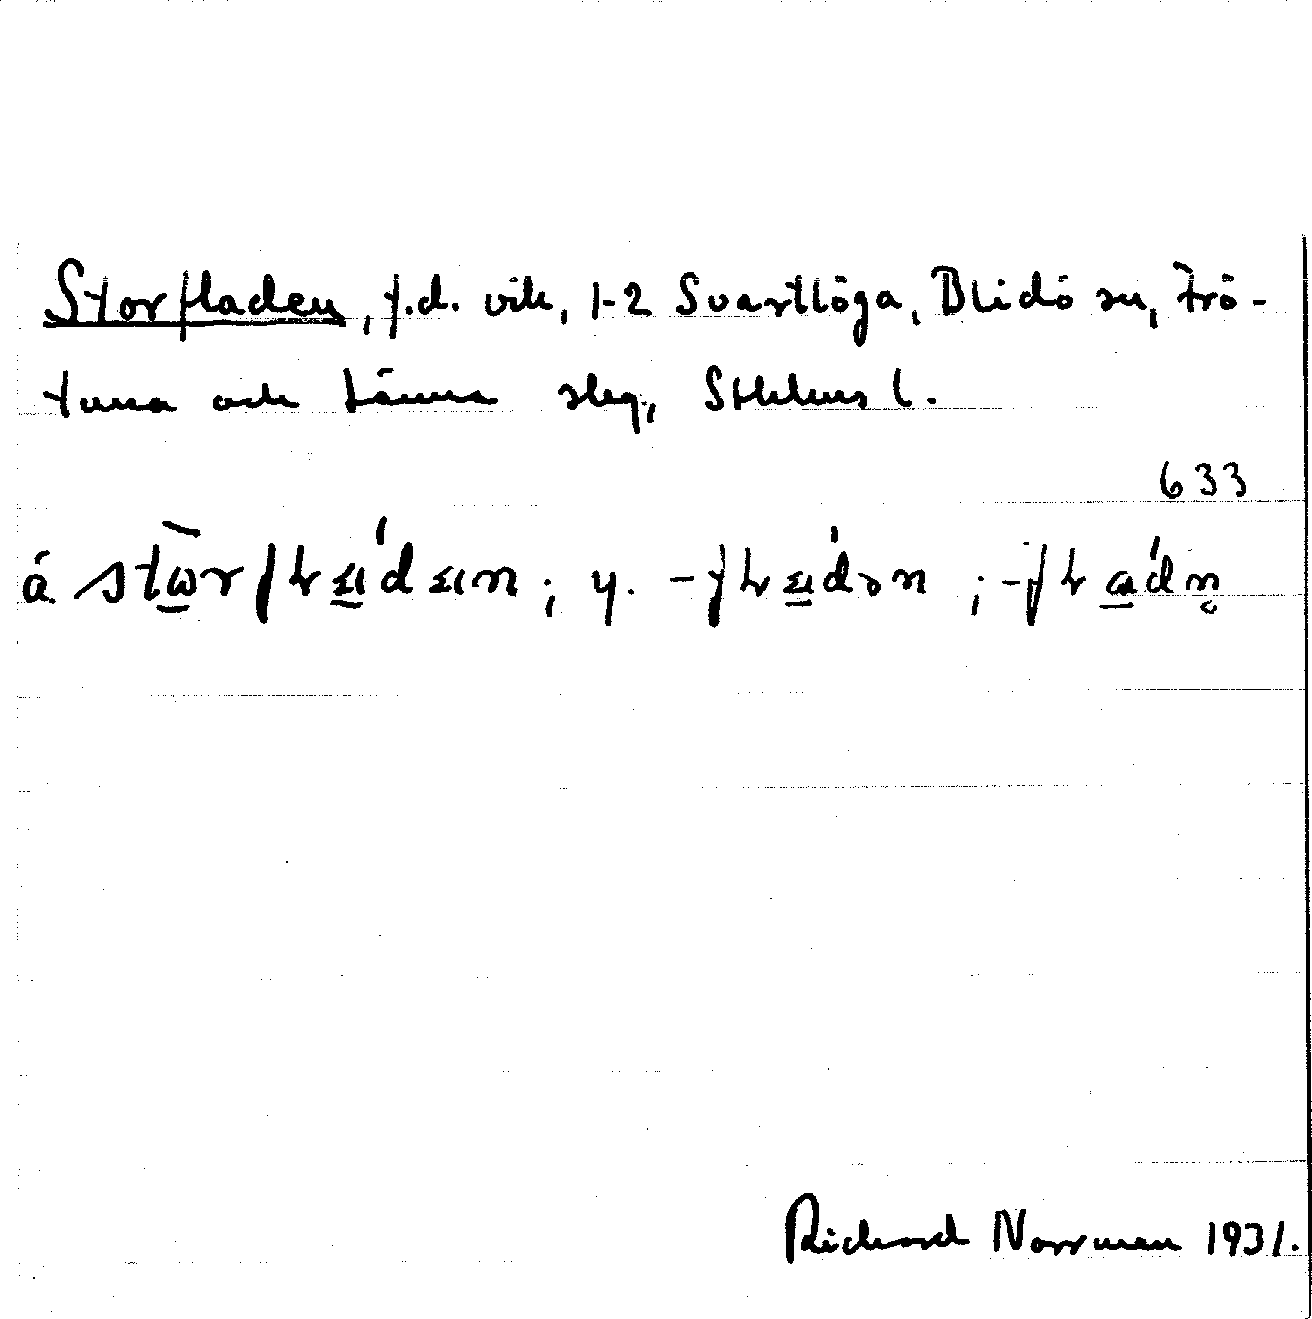 Storfladen, f.d. vik, 1-2 Svartlöga, Blidö sn, Frö-
tuna och Länna sleg, Sthlms l.
633
á stὼ̲rflɑ̲́dɑn; y. -flɑ̲́dən; -flɑ̲́dn̥
Richard Norrman 1931.